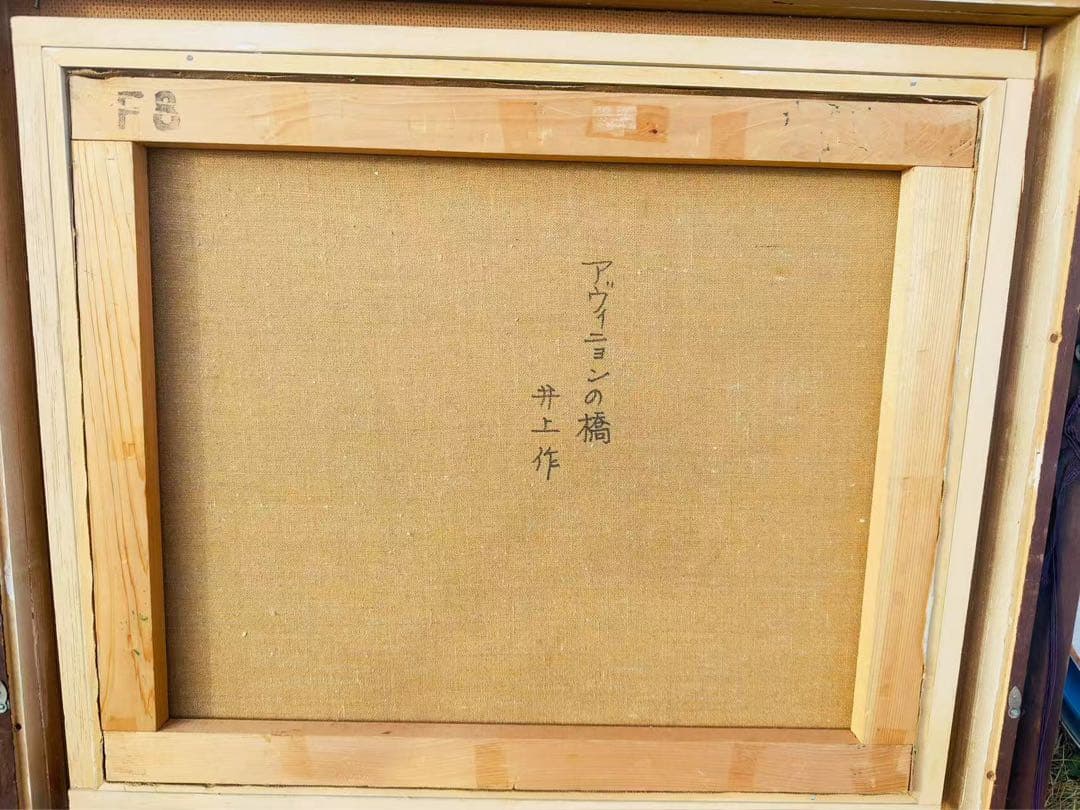 F8
アヴィニョンの橋
井上作